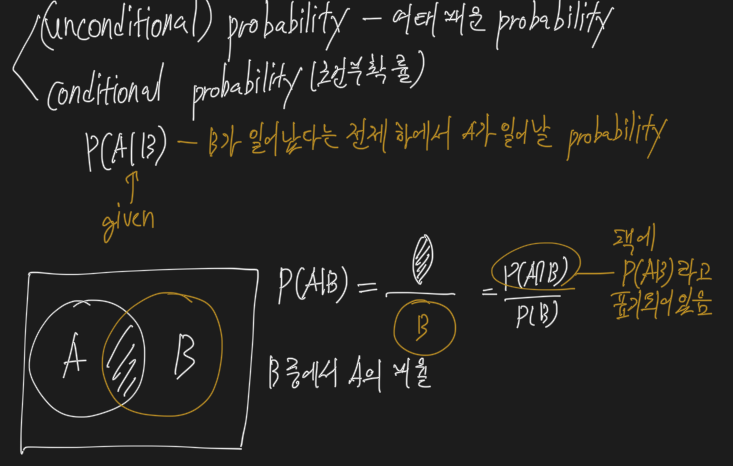 (unconditional) probability — 여태 배운 probability
conditional probability (조건부확률)
P(A|B) — B가 일어났다는 전제 하에서 A가 일어날 probability
↑
given
A B
P(A|B) = B = P(A∩B) / P(B)
책에
P(AB)라고
표기되어있음
B 중에서 A의 비율